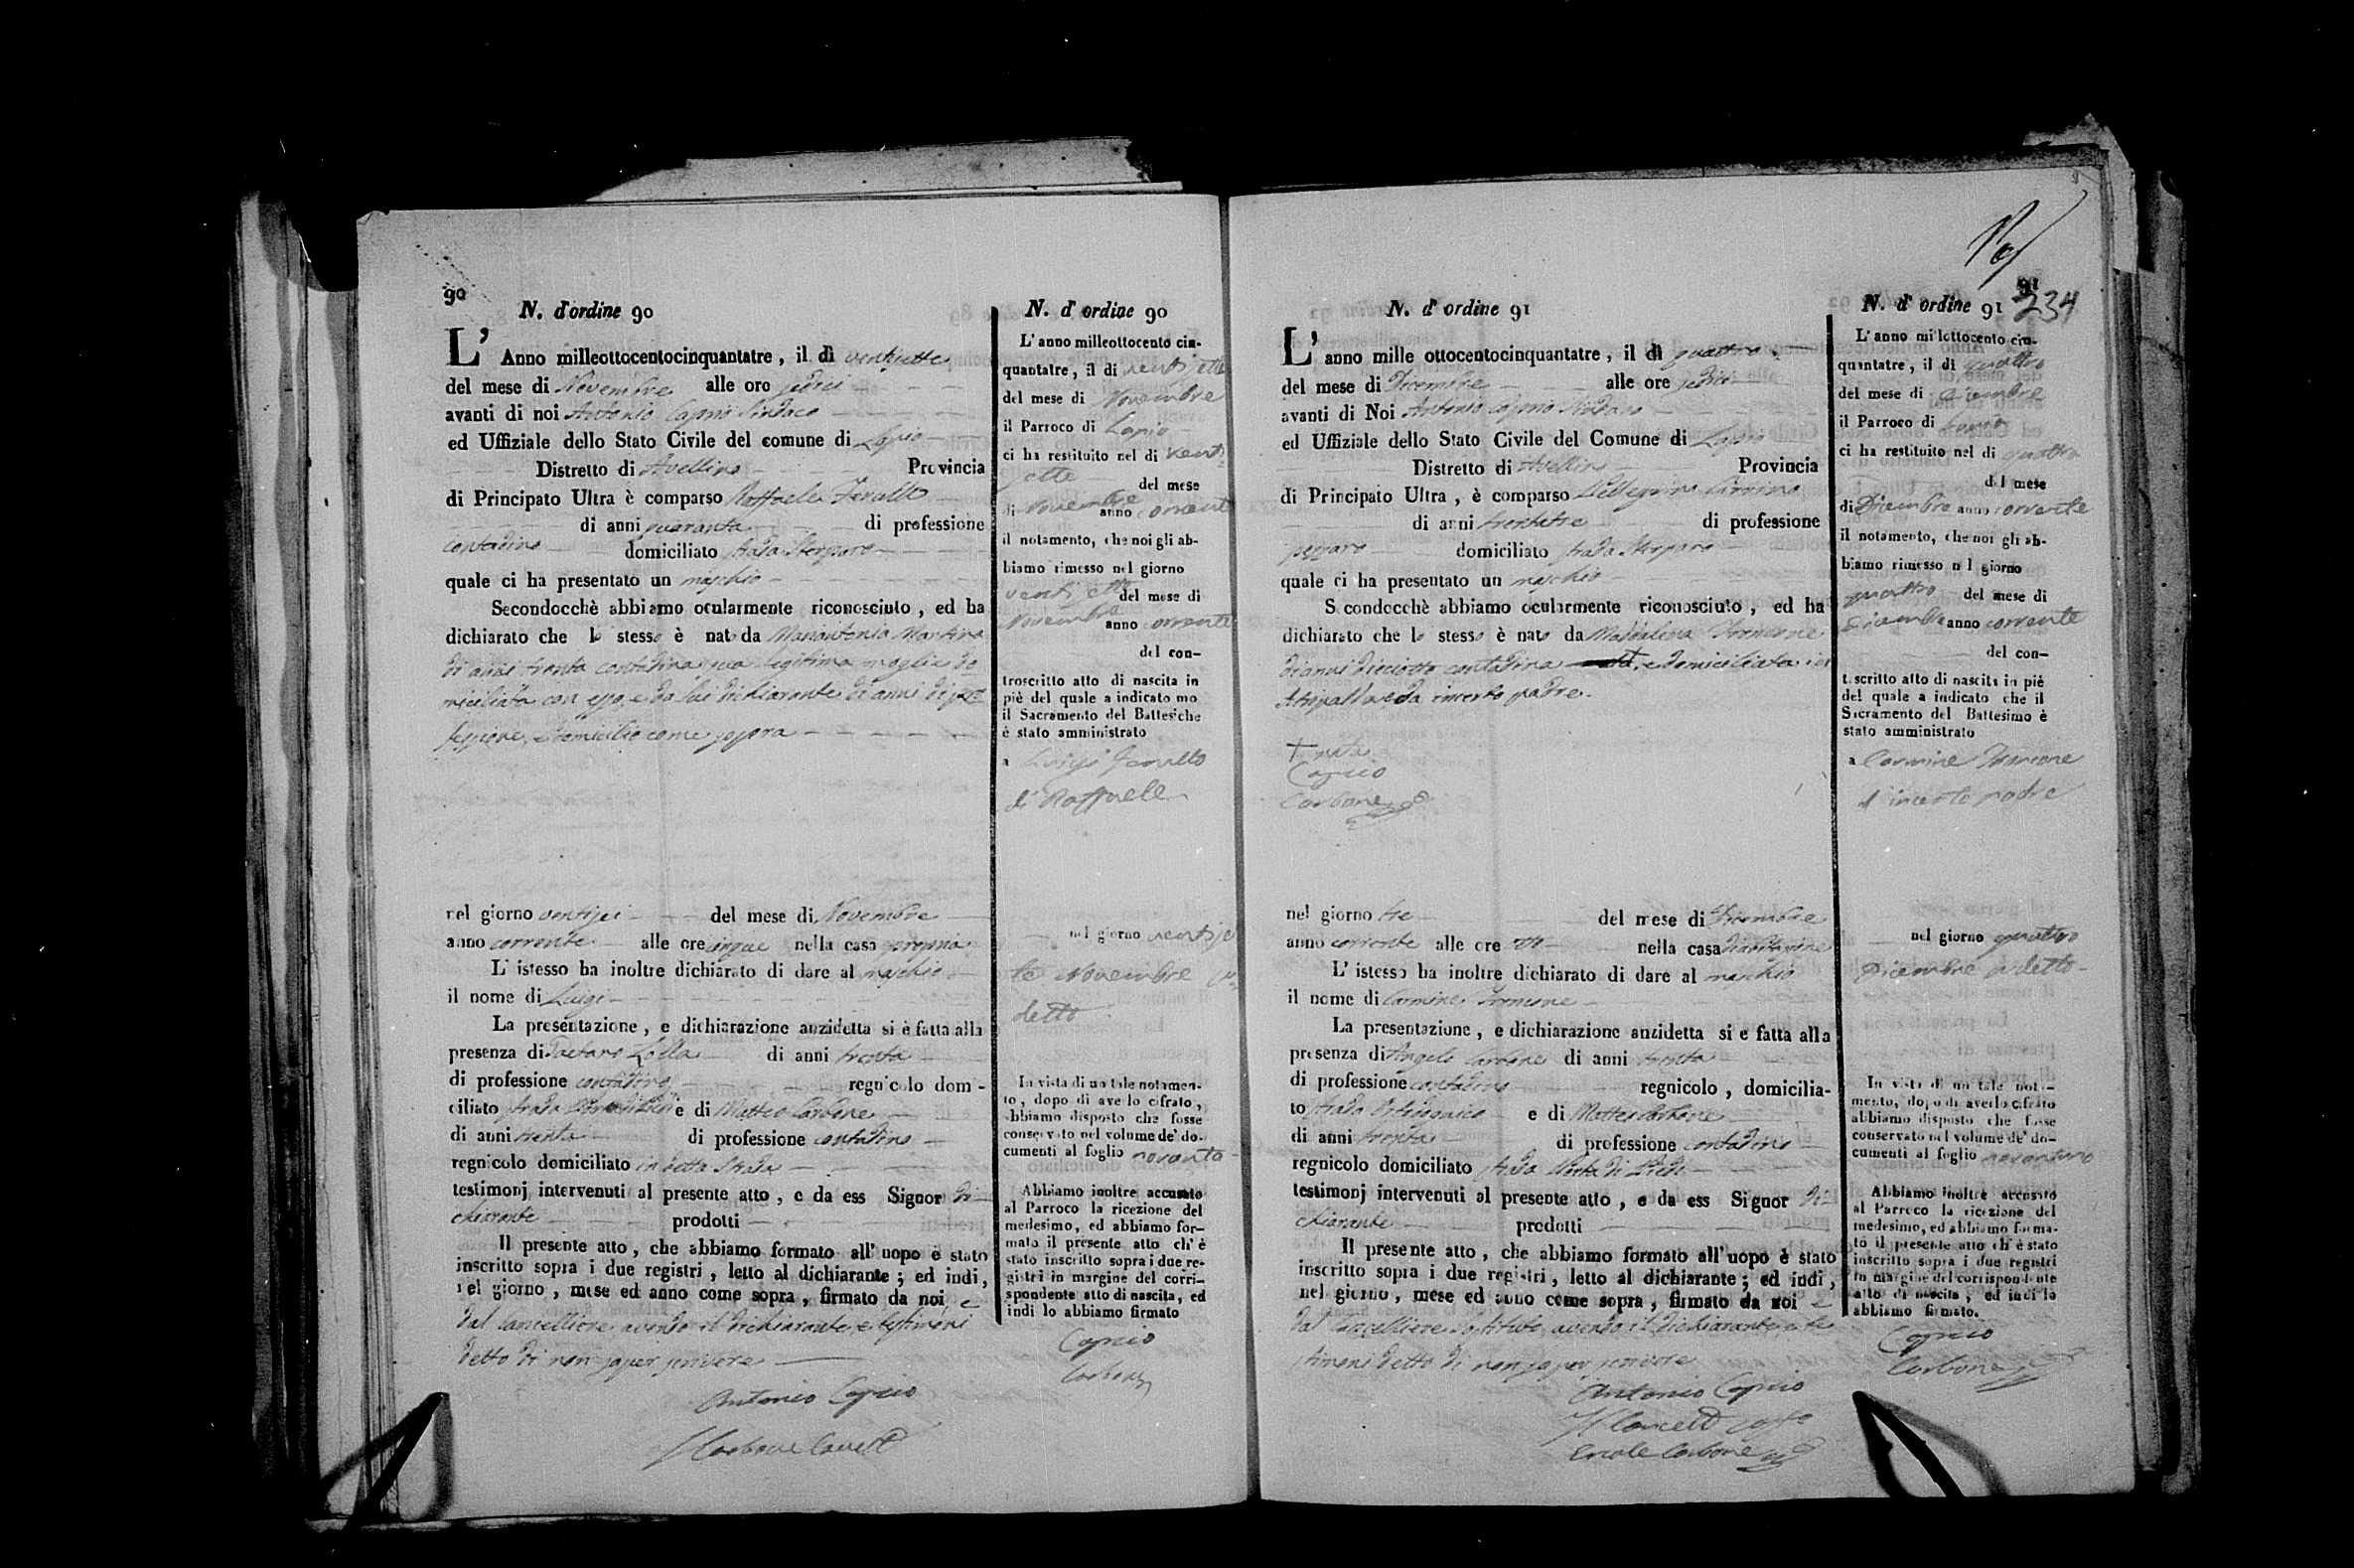 90
N. d'ordine 90
L' Anno milleottocentocinquantatre, il dì ventisette
del mese di Novembre alle ore sedici
avanti di noi Antonio Caprio Sindaco
ed Uffiziale dello Stato Civile del comune di Lapio
Distretto di Avellino Provincia
di Principato Ultra è comparso Raffaele
di anni quaranta di professione
contadino domiciliato strada
quale ci ha presentato un maschio
Secondocchè abbiamo ocularmente riconosciuto, ed ha
dichiarato che lo stesso è nato da Mariantonia
di anni trenta contadina sua legitima moglie do
miciliata con esso, e da lui dichiarante di anni di pro
fessione, e domicilio come sopra
nel giorno ventisei del mese di Novembre
anno corrente alle ore cinque nella casa propria
L'istesso ha inoltre dichiarato di dare al maschio
il nome di Luigi
La presentazione, e dichiarazione anzidetta si è fatta alla
presenza di Gaetano di anni trenta
di professione contadino regnicolo dom-
ciliato strada e di Matteo Carbone
di anni trenta di professione contadino
regnicolo domiciliato in detta Strada
testimonj intervenuti al presente atto, e da ess Signor di-
chiarante prodotti
Il presente atto, che abbiamo formato all'uopo è stato
inscritto sopra i due registri, letto al dichiarante; ed indi,
nel giorno, mese ed anno come sopra, firmato da noi e
dal Cancelliere avendo il dichiarante, e testimoni
detto di non saper scrivere
Antonio Caprio
Carbone Canc
N. d'ordine 90
L'anno milleottocento cin-
quantatre, il di ventisette
del mese di Novembre
il Parroco di Lapio
ci ha restituito nel di venti
sette del mese
di Novembre anno corrente
il notamento, che noi gli ab-
biamo rimesso nel giorno
ventisette del mese di
Novembre anno corrente
del con-
troscritto atto di nascita in
piè del quale a indicato mo
il Sacramento del Battesiche
è stato amministrato
a Luigi
di Raffaele
nel giorno ventiset
te Novembre
detto
In vista di un tale notamen-
to, dopo di averlo cifrato,
abbiamo disposto che fosse
conservato nel volume de' do-
cumenti al foglio novanta
Abbiamo inoltre accusato
al Parroco la ricezione del
medesimo, ed abbiamo for-
mato il presente atto ch'è
stato inscritto sopra i due re-
gistri in margine del corri-
spondente atto di nascita, ed
indi lo abbiamo firmato
Caprio
Carbone
91
234
N. d'ordine 91
L' anno mille ottocentocinquantatre, il dì quattro
del mese di Dicembre alle ore sedici
avanti di Noi Antonio Caprio Sindaco
ed Uffiziale dello Stato Civile del Comune di Lapio
Distretto di Avellino Provincia
di Principato Ultra, è comparso Pellegrino
di anni trentatre di professione
domiciliato strada
quale ci ha presentato un maschio
Secondocchè abbiamo ocularmente riconosciuto, ed ha
dichiarato che lo stesso è nato da Maddalena
di anni diciotto contadina e domiciliata in
Atripalda e da incerto padre.
+ nata
Caprio
Carbone
nel giorno tre del mese di Dicembre
anno corrente alle ore tre nella casa
L'istesso ha inoltre dichiarato di dare al maschio
il nome di Carmine
La presentazione, e dichiarazione anzidetta si e fatta alla
presenza di Angelo Carbone di anni trenta
di professione contadino regnicolo, domicilia-
to strada e di Matteo Carbone
di anni trenta di professione contadino
regnicolo domiciliato strada
testimonj intervenuti al presente atto, e da ess Signor di-
chiarante prodotti
Il presente atto, che abbiamo formato all'uopo è stato
inscritto sopra i due registri, letto al dichiarante; ed indi,
nel giorno, mese ed anno come sopra, firmato da noi e
dal Cancelliere sostituto, avendo il dichiarante, e te
stimoni detto di non saper scrivere
Antonio Caprio
Il Cancell sost
Ercole Carbone
N. d'ordine 91
L'anno millottocento cin-
quantatre, il di quattro
del mese di Dicembre
il Parroco di Lapio
ci ha restituito nel di quattro
del mese
di Dicembre anno corrente
il notamento, che noi gli ab-
biamo rimesso nel giorno
quattro del mese di
Dicembre anno corrente
del con-
troscritto atto di nascita in piè
del quale a indicato che il
Sacramento del Battesimo è
stato amministrato
a Carmine
d'incerto padre
nel giorno quattro
Dicembre detto
In vista di un tale nota-
mento, dopo di averlo cifrato
abbiamo disposto che fosse
conservato nel volume de' do-
cumenti al foglio novantuno
Abbiamo inoltre accusato
al Parroco la ricezione del
medesimo, ed abbiamo forma-
to il presente atto ch'è stato
inscritto sopra i due registri
in margine del corrispondente
atto di nascita, ed indi lo
abbiamo firmato.
Caprio
Carbone